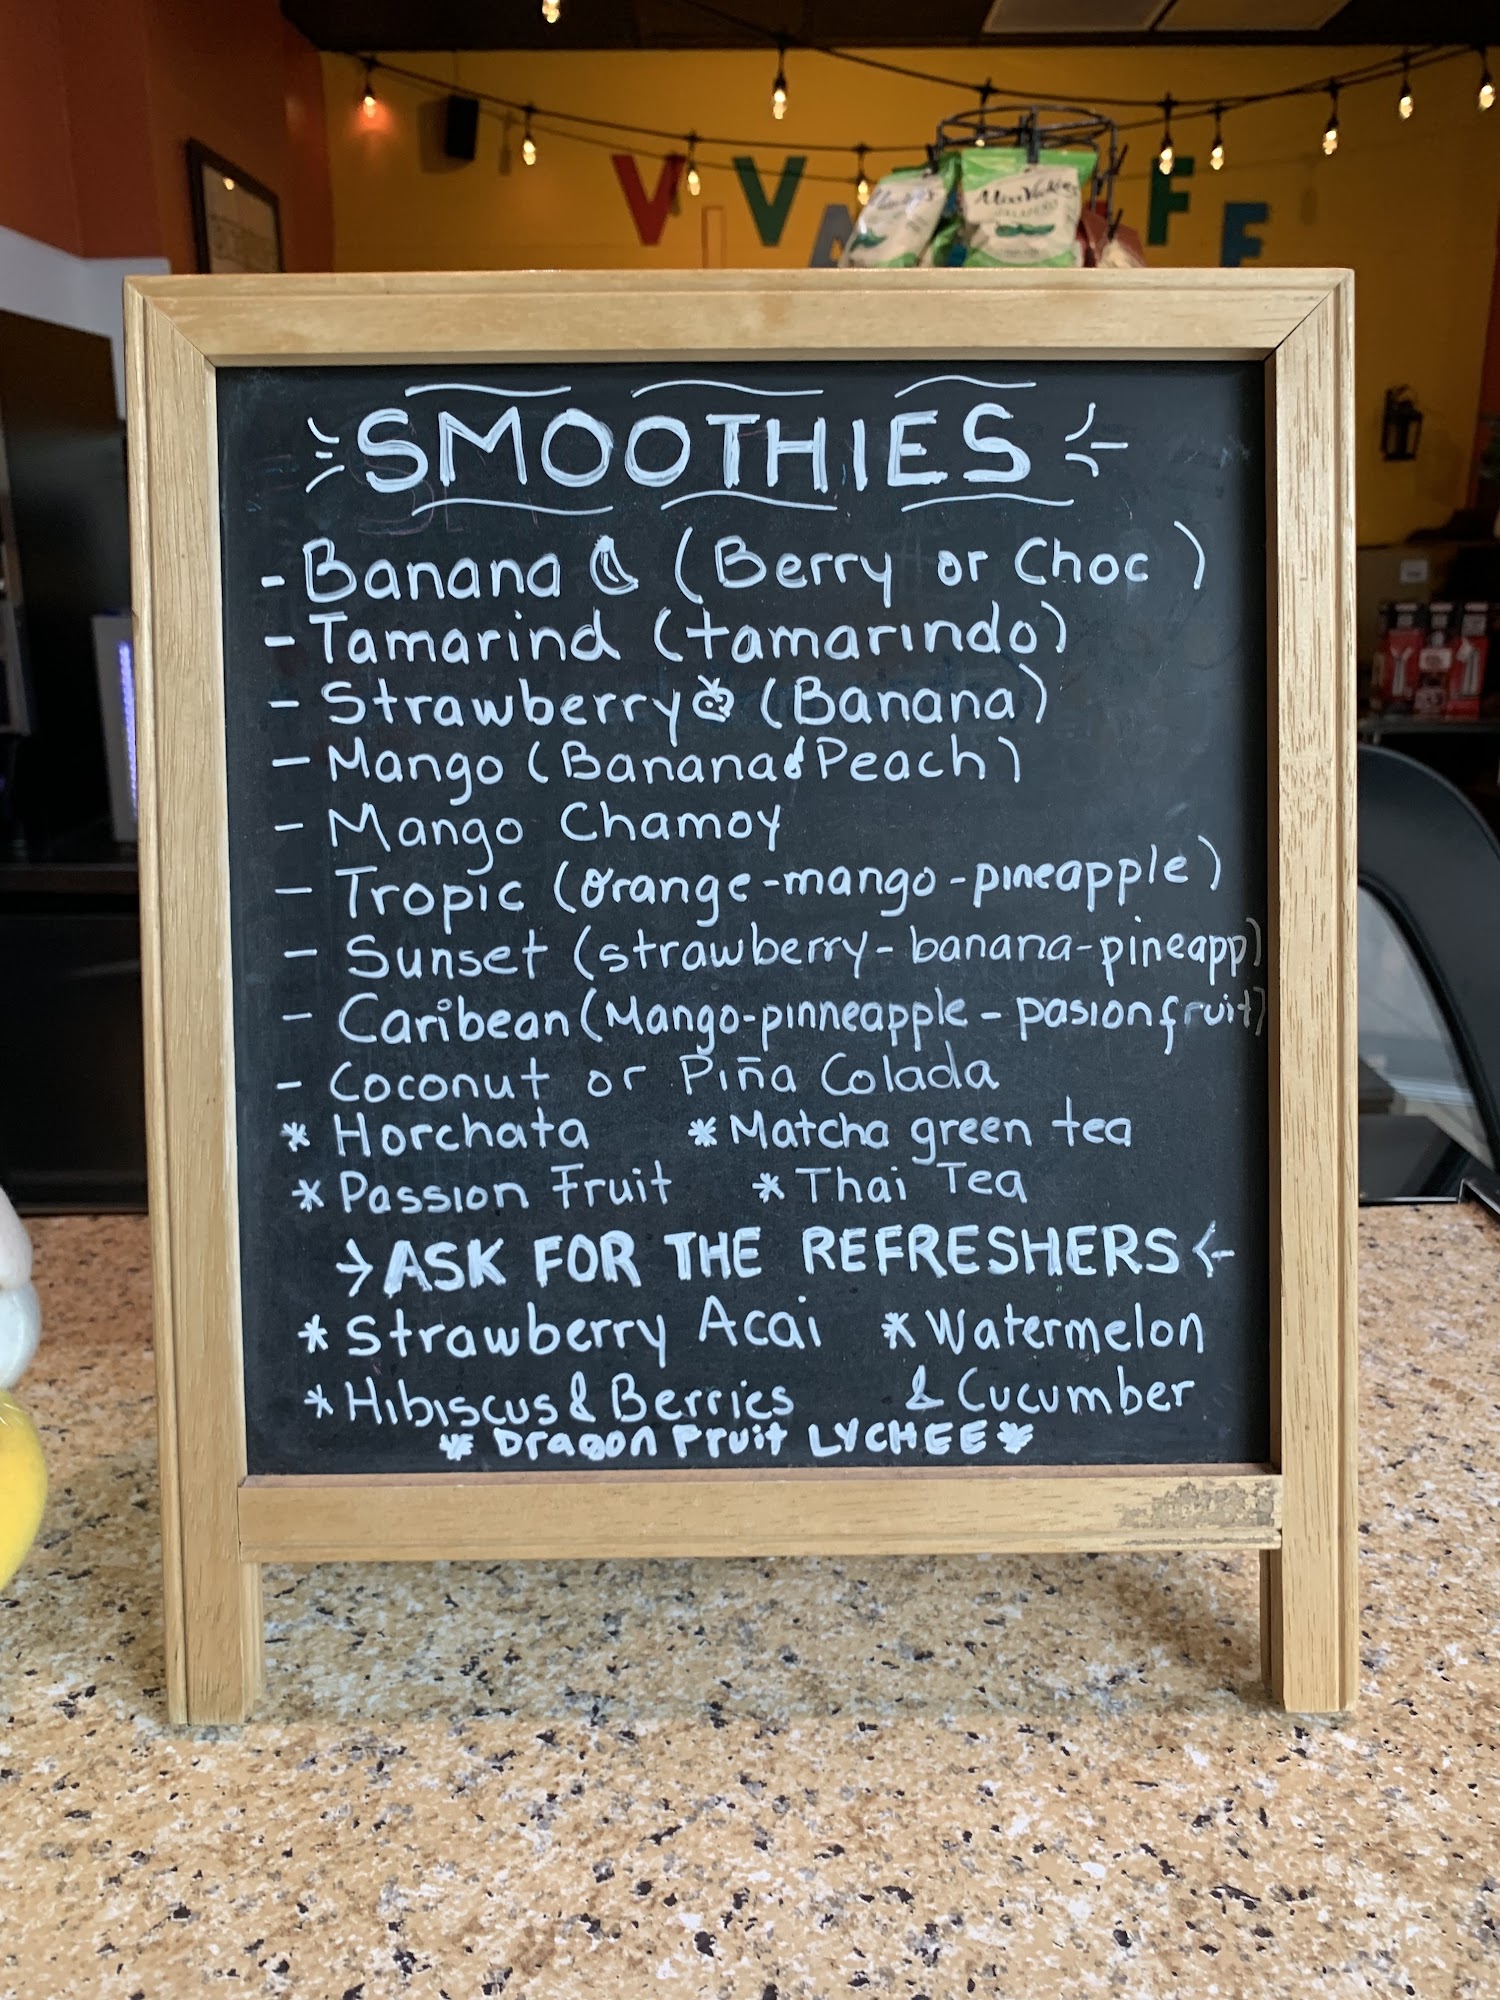 VIVA FE
Miss Vickie's
JALAPEÑO
SMOOTHIES
- Banana (Berry or Choc)
- Tamarind (tamarindo)
- Strawberry (Banana)
- Mango (Banana Peach)
- Mango Chamoy
- Tropic (orange-mango-pineapple)
- Sunset (strawberry-banana-pineapp)
- Caribean (Mango-pinneapple-pasionfruit)
- Coconut or Piña Colada
* Horchata * Matcha green tea
* Passion Fruit * Thai Tea
→ ASK FOR THE REFRESHERS ←
* Strawberry Acai * Watermelon
* Hibiscus & Berries & Cucumber
* Dragon Fruit LYCHEE *